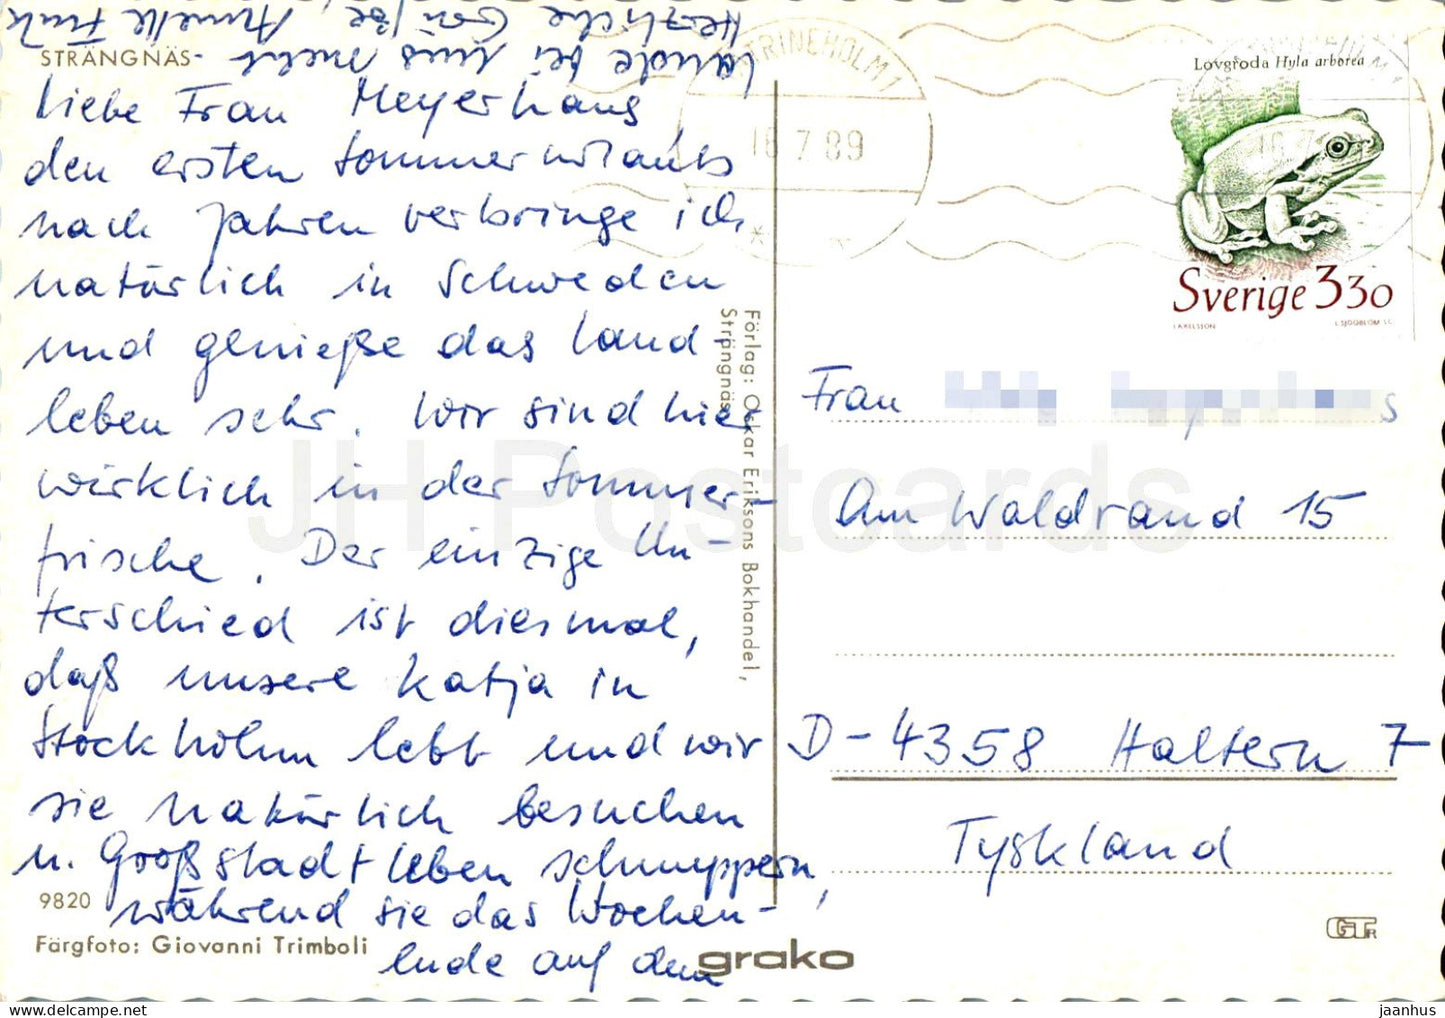 STRÄNGNÄS
Liebe Frau Meyerhaus,
den ersten Sommerurlaub
nach Jahren verbringe ich
natürlich in Schweden
und genieße das Land-
leben sehr. Wir sind hier
wirklich in der Sommer-
frische. Der einzige Un-
terschied ist diesmal,
daß unsere Katja in
Stockholm lebt und wir
sie natürlich besuchen
u. Großstadtleben schnuppern,
während sie das Wochen-
ende auf dem
Lande bei uns
Herzliche Grüße, Annelle Fink
9820
Färgfoto: Giovanni Trimboli
Förlag: Oskar Eriksons Bokhandel,
Strängnäs
grako
KATRINEHOLM 1
16 7 89
Lövgroda Hyla arborea
Sverige 330
I. AXELSSON
L. SJÖÖBLOM SC.
Frau
Am Waldrand 15
D-4358 Haltern 7
Tyskland
JH Postcards
https://www.delcampe.net
jaanhus